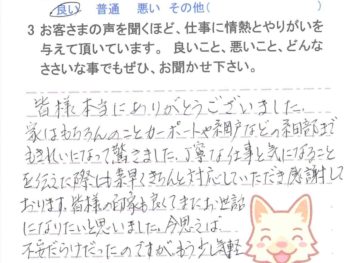 良い 普通 悪い その他(
3 お客さまの声を聞くほど、仕事に情熱とやりがいを
与えて頂いています。 良いこと、悪いこと、どんな
ささいな事でもぜひ、お聞かせ下さい。
皆様本当にありがとうございました。
家はもちろんのことカーポートや網戸などの細部まで
もきれいになって驚きました。丁寧な仕事と気になること
を伝えた際は素早くきちんと対応していただき感謝して
おります。皆様の印象も良くてまたお世話
になりたいと思いました。今思えば
不安だらけだったのですが、もう少し気軽